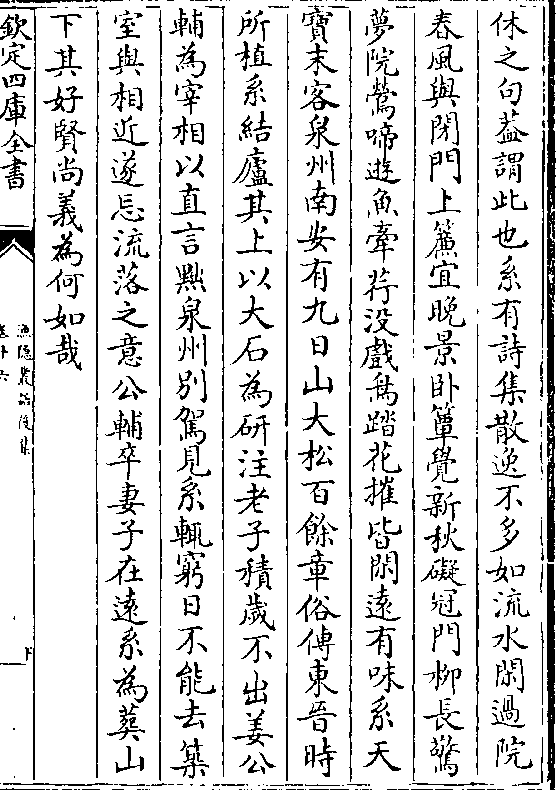 休之句葢謂此也系有詩集散逸不多如流水閒過院
春風與閉門上簾宜晚景卧簟覺新秋礙冠門柳長驚
夢院鶯啼遊魚牽荇没戲鳥踏花摧皆閒逺有味系天
寳末客泉州南安有九日山大松百餘章俗傳東晉時
所植系結廬其上以大石為研注老子積嵗不出姜公
輔為宰相以直言黜泉州别駕見系輒窮日不能去築
室與相近遂忘流落之意公輔卒妻子在逺系為葬山
下其好賢尚義為何如哉
欽定四庫全書
漁隠叢話後集
卷十六